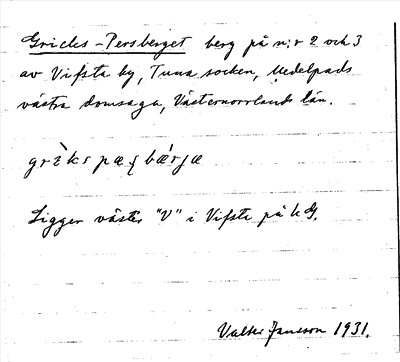 Gricks-Persberget berg på n:r 2 och 3
av Vifsta by, Tuna socken, Medelpads
västra domsaga, Västernorrlands län.
Ligger väster "V" i Vifsta på k G.
Valter Jansson 1931.